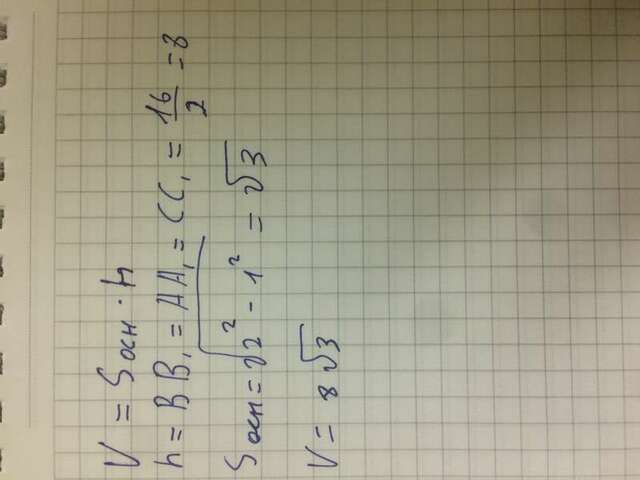 V = Sосн · h
h = BB₁ = AA₁ = CC₁ = 16/2 = 8
Sосн = √(2² - 1²) = √3
V = 8√3